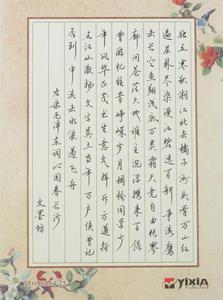 独立寒秋湘江北去橘子洲头看万山红
遍层林尽染漫江碧透百舸争流鹰
击长空鱼翔浅底万类霜天竞自由怅寥
廓问苍茫大地谁主沉浮携来百侣
曾游忆往昔峥嵘岁月稠恰同学少
年风华正茂书生意气挥斥方遒指
点江山激扬文字粪土当年万户侯曾记
否到中流击水浪遏飞舟
右录毛泽东词沁园春长沙
文墨坊
YIXIA